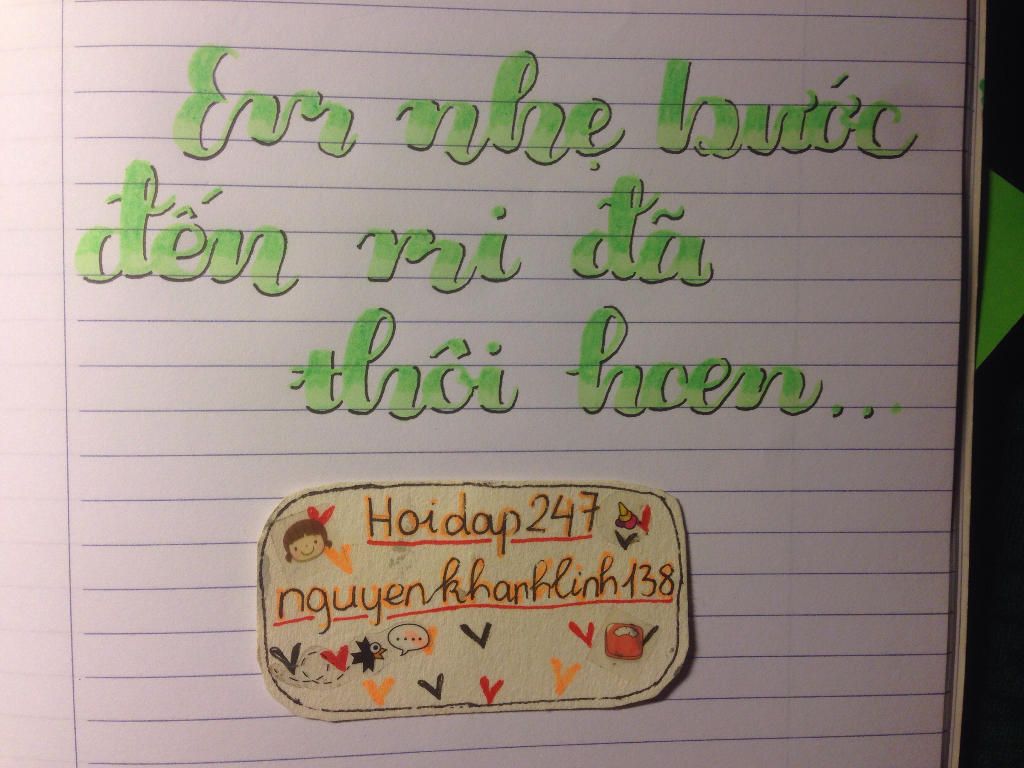 Em nhẹ bước
đến mi đã
thôi hoen...
Hoidap247
nguyenkhanhlinh138